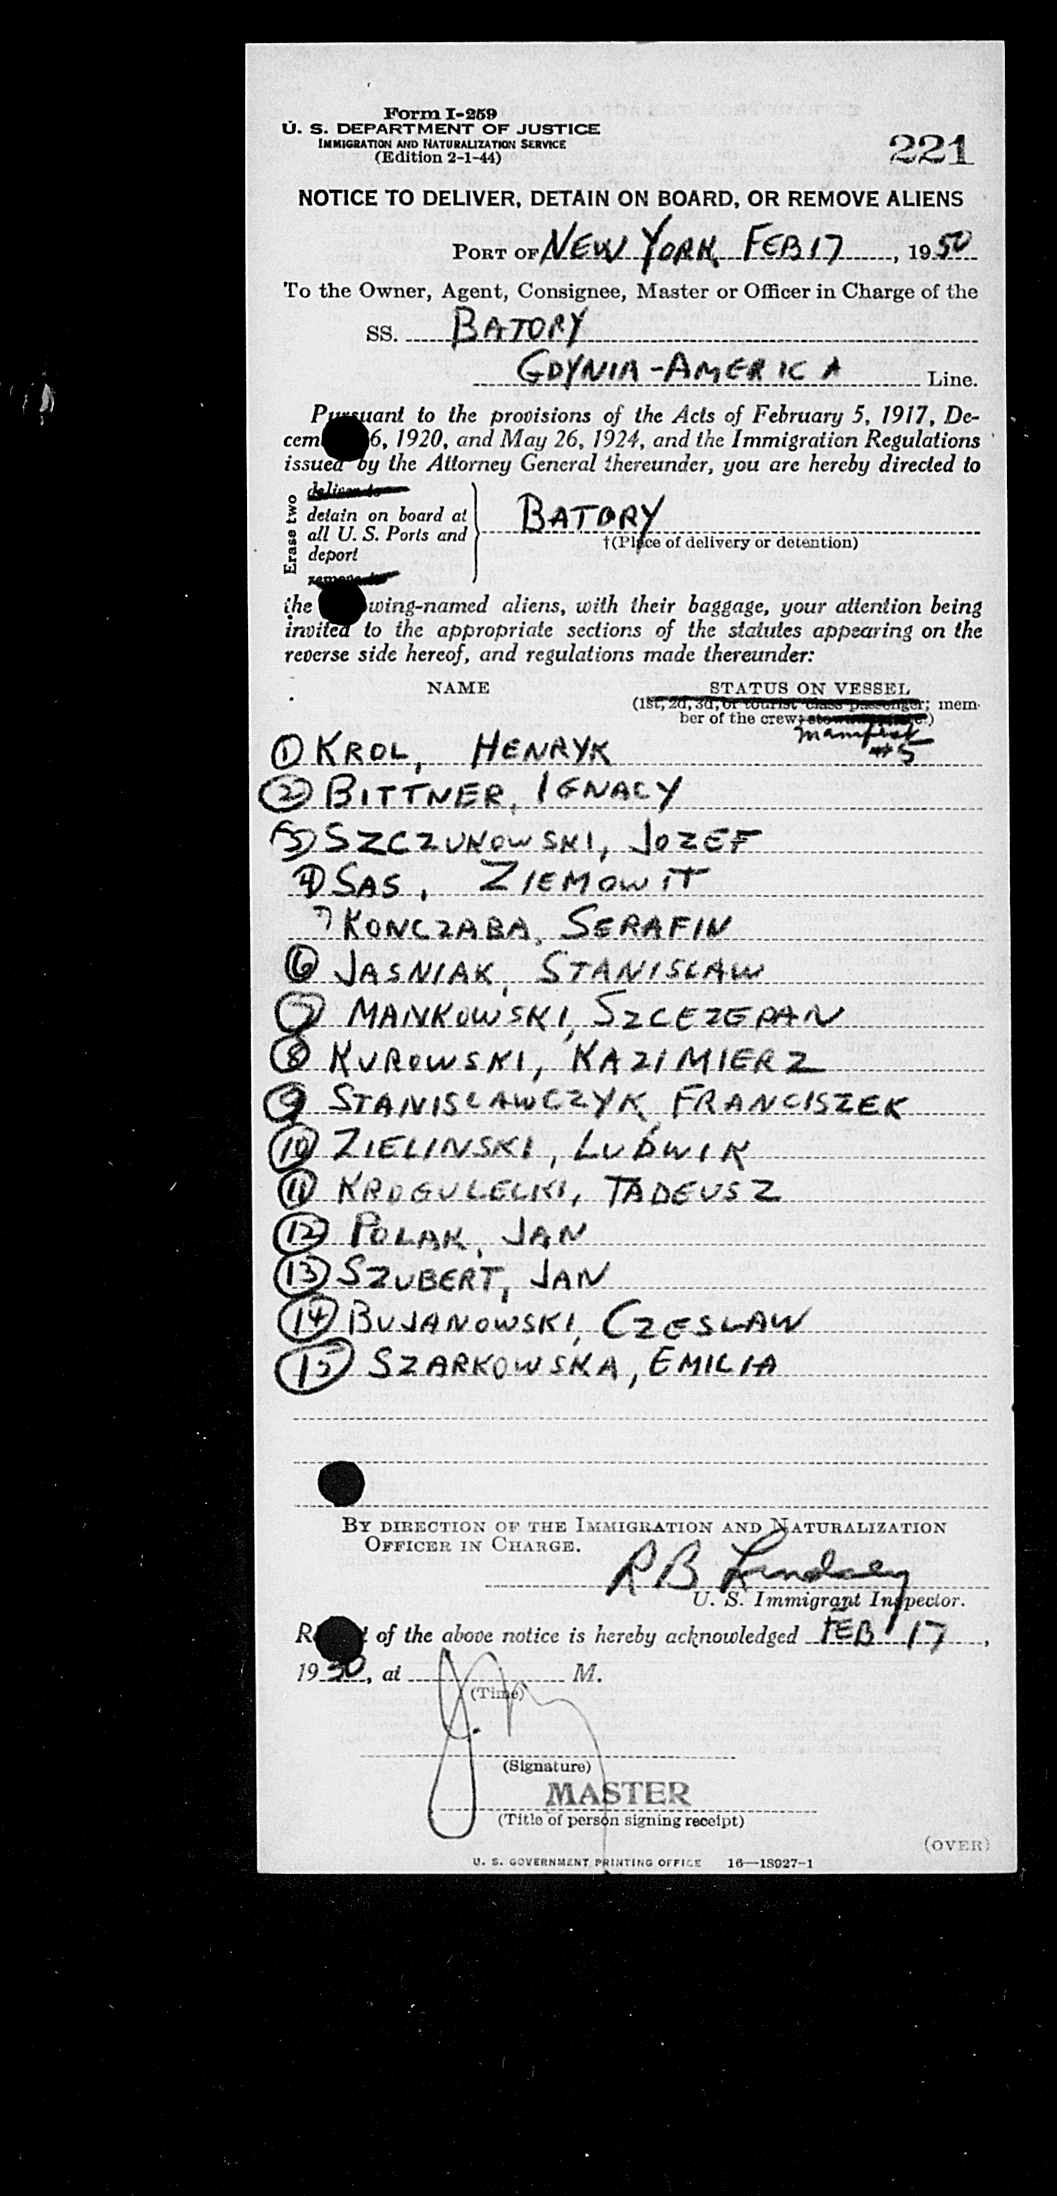 Form I-259
U. S. DEPARTMENT OF JUSTICE
IMMIGRATION AND NATURALIZATION SERVICE
(Edition 2-1-44)
221
NOTICE TO DELIVER, DETAIN ON BOARD, OR REMOVE ALIENS
PORT OF NEW YORK FEB 17, 1950
To the Owner, Agent, Consignee, Master or Officer in Charge of the
SS. BATORY
GDYNIA-AMERICA Line.
Pursuant to the provisions of the Acts of February 5, 1917, De-
cem 6, 1920, and May 26, 1924, and the Immigration Regulations
issued by the Attorney General thereunder, you are hereby directed to
Erase two
deliver to
detain on board at
all U. S. Ports and
deport
remove to
BATORY
†(Place of delivery or detention)
the wing-named aliens, with their baggage, your attention being
invited to the appropriate sections of the statutes appearing on the
reverse side hereof, and regulations made thereunder:
NAME STATUS ON VESSEL
(1st, 2d, 3d, or tourist class passenger; mem-
ber of the crew;
manifest
#5
1 KROL, HENRYK
2 BITTNER, IGNACY
3 SZCZUKOWSKI, JOZEF
4 SAS, ZIEMOWIT
KONCZABA, SERAFIN
6 JASNIAK, STANISLAW
7 MANKOWSKI, SZCEZEPAN
8 KUROWSKI, KAZIMIERZ
9 STANISLAWCZYK, FRANCISZEK
10 ZIELINSKI, LUDWIK
11 KROGULECKI, TADEUSZ
12 POLAK, JAN
13 SZUBERT, JAN
14 BUJANOWSKI, CZESLAW
15 SZARKOWSKA, EMILIA
BY DIRECTION OF THE IMMIGRATION AND NATURALIZATION
OFFICER IN CHARGE.
R B Lindsey
U. S. Immigrant Inspector.
R t of the above notice is hereby acknowledged FEB 17,
1950, at M.
(Time)
(Signature)
MASTER
(Title of person signing receipt)
(OVER)
U. S. GOVERNMENT PRINTING OFFICE 16—18927-1